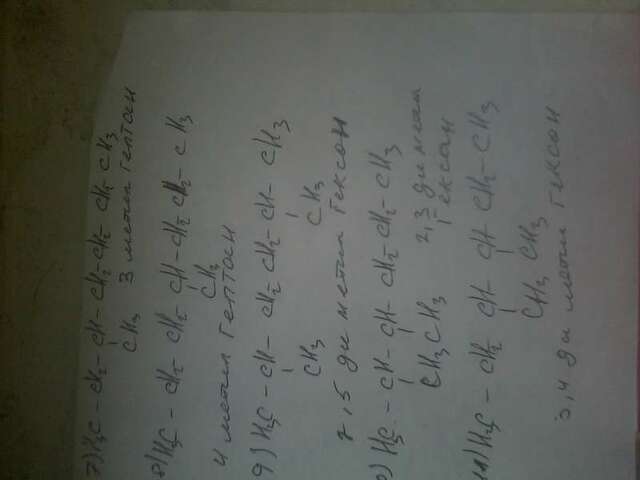 7) H₃C - CH₂ - CH - CH₂ - CH₂ - CH₂ - CH₃
CH₃ 3 метил гептан
8) H₃C - CH₂ - CH₂ - CH - CH₂ - CH₂ - CH₃
CH₃
4 метил гептан
9) H₃C - CH - CH₂ - CH₂ - CH - CH₃
CH₃ CH₃
2,5 ди метил гексан
H₃C - CH - CH - CH₂ - CH₂ - CH₃
CH₃ CH₃ 2,3 ди метил
гексан
H₃C - CH₂ - CH - CH - CH₂ - CH₃
CH₃ CH₃
3,4 ди метил гексан